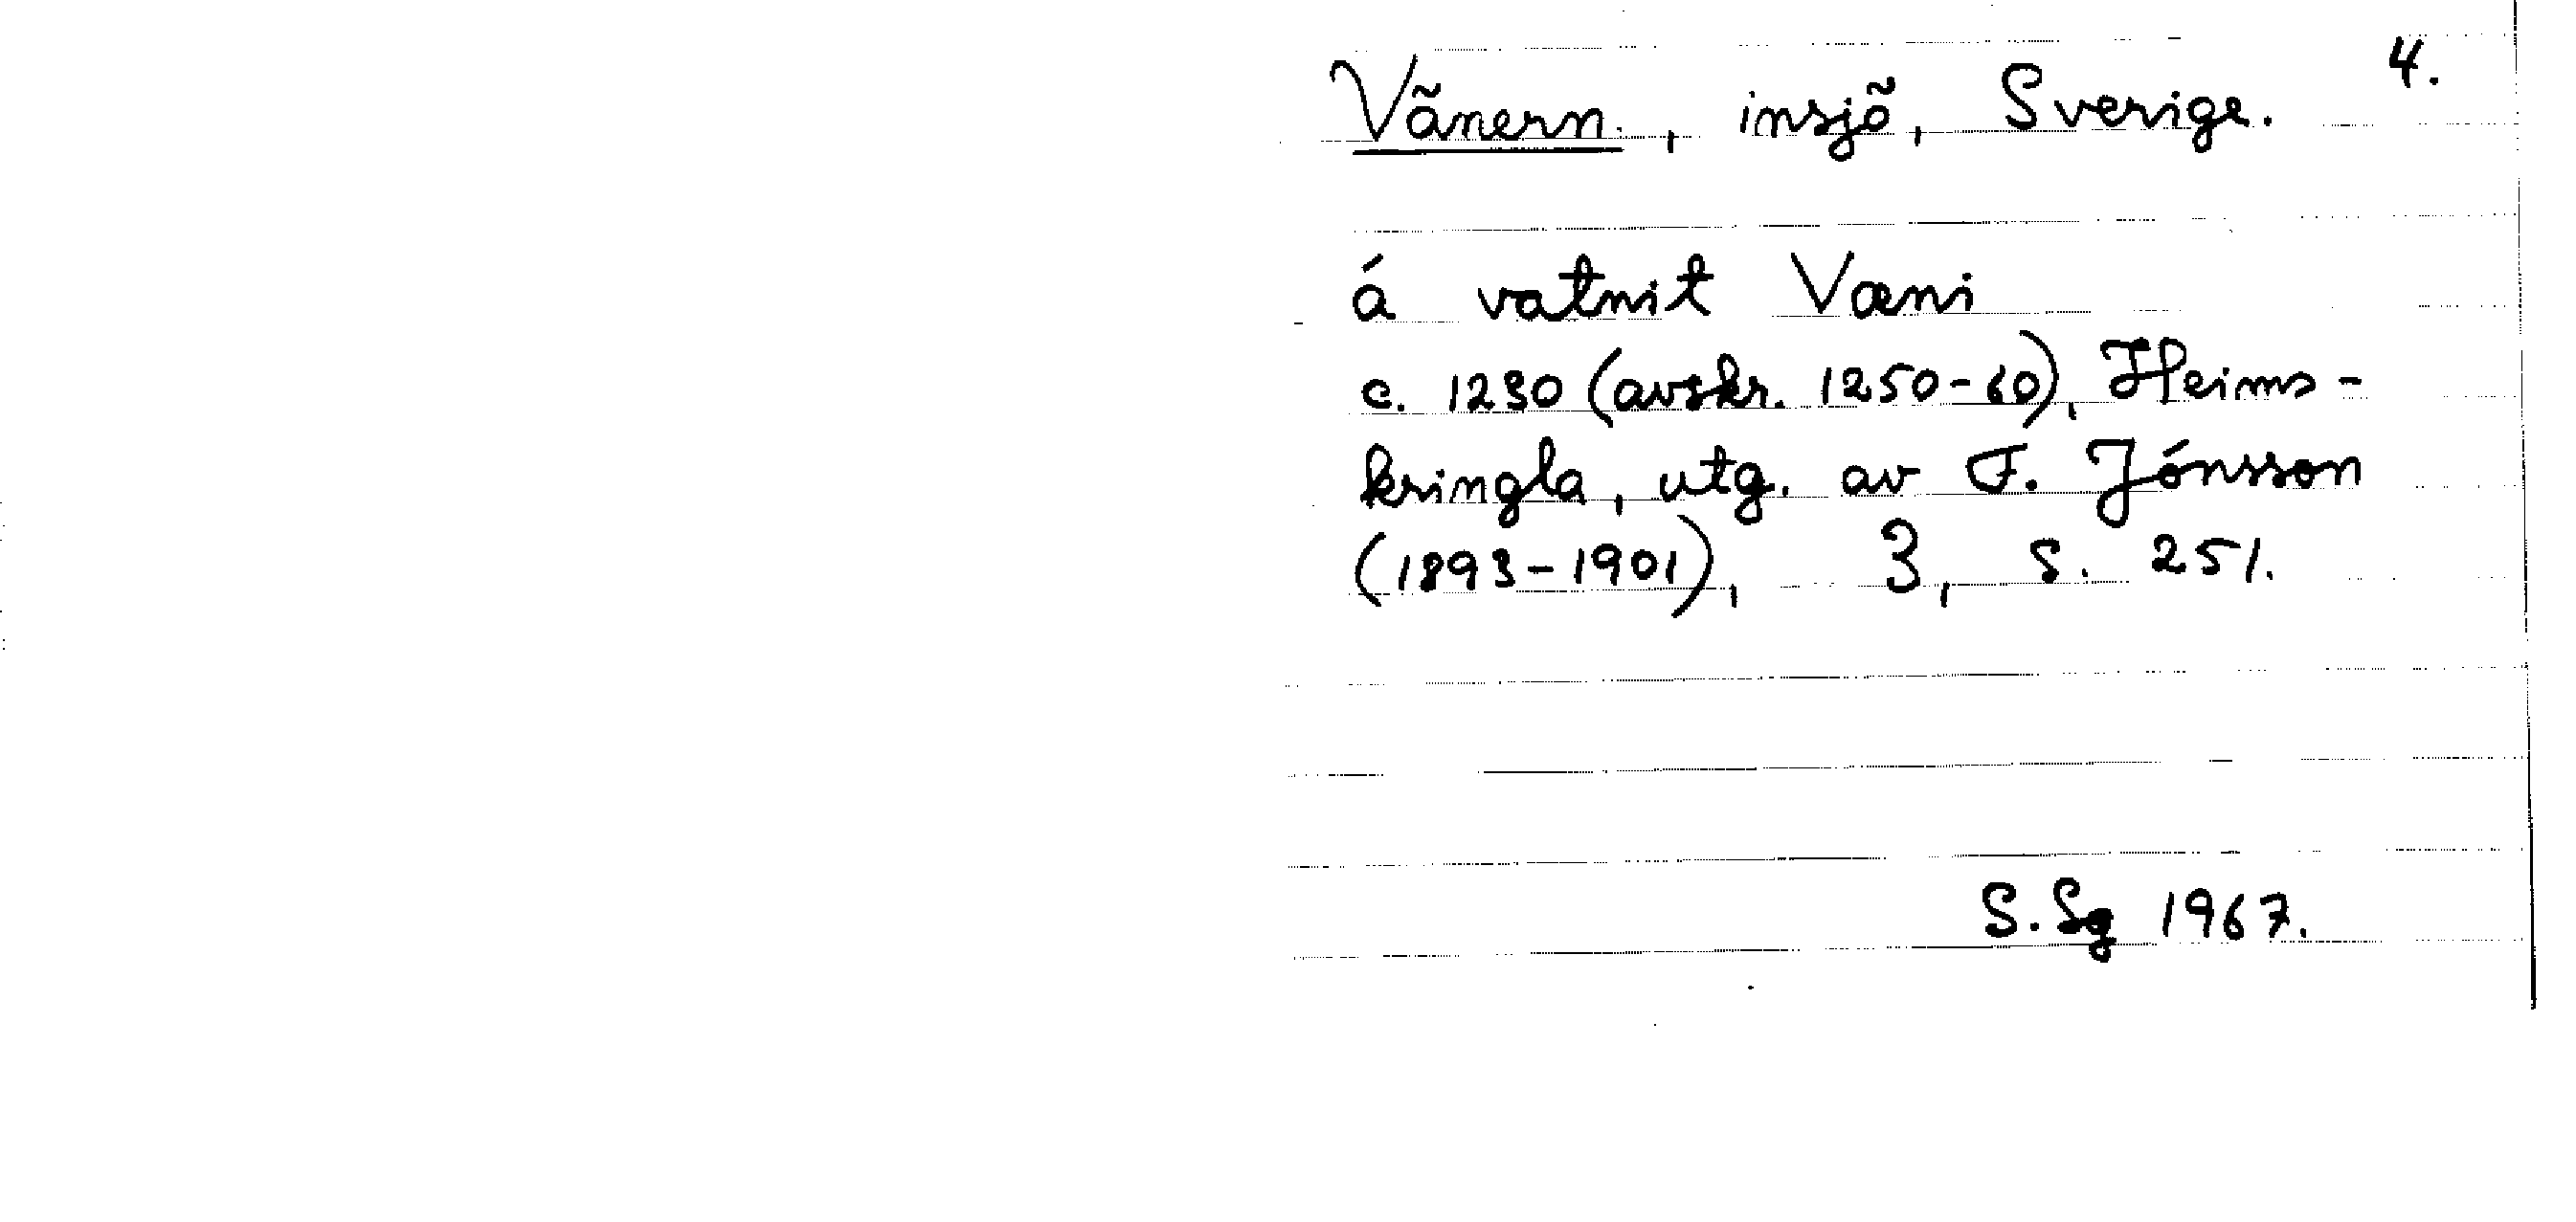 4.
Vänern, insjö, Sverige.
á vatnit Væni
c. 1230 (avskr. 1250-60), Heims-
kringla, utg. av F. Jónsson
(1893-1901), 3, s. 251.
S. Sg 1967.